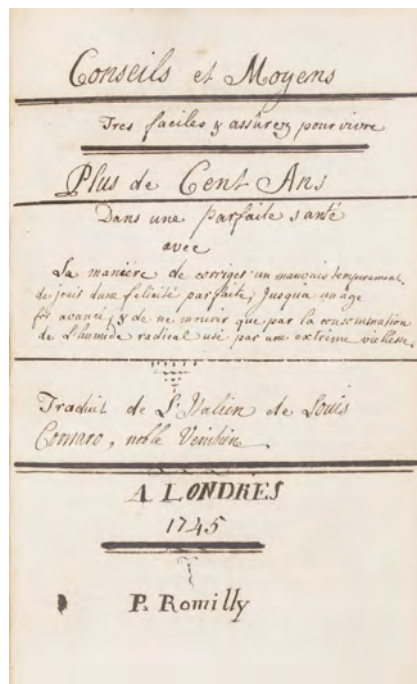 Conseils et Moyens
Tres faciles & assûrez pour vivre
Plus de Cent Ans
Dans une parfaite santé
avec
La maniére de corriger un mauvais temperament,
de jouir d'une felicité parfaite, Jusqu'a un age
fort avancé, & de ne mourir que par la consommation
de L'humide radical usé par une extrême viellesse.
Traduit de L'Italien de Louis
Cornaro, noble Venitien
A LONDRES
1745
P. Romilly